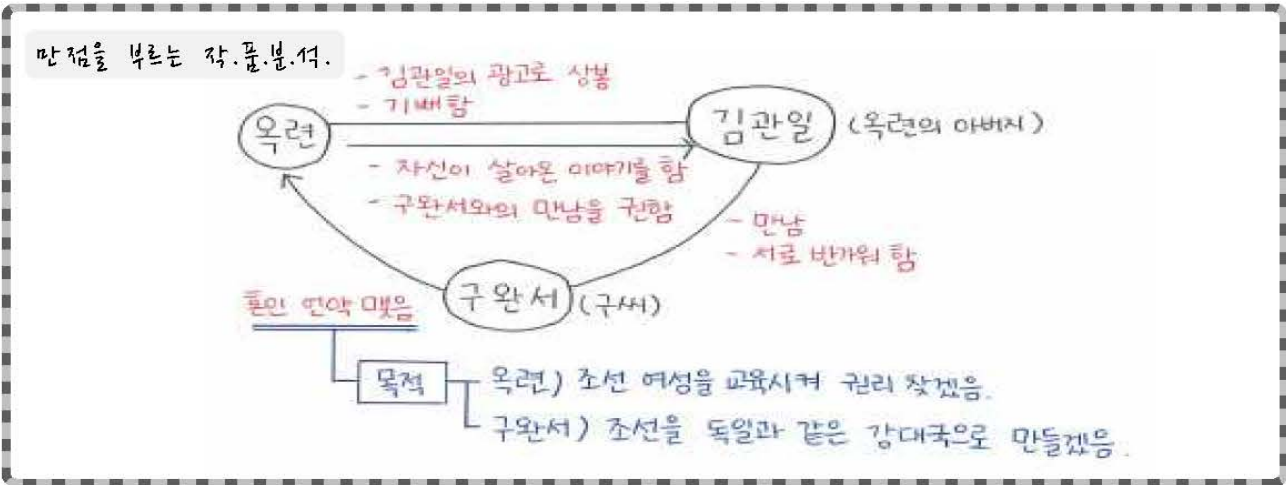 만점을 부르는 작.품.분.석.
- 김관일의 광고로 상봉
- 기뻐함
옥련
김관일 (옥련의 아버지)
- 자신이 살아온 이야기를 함
- 구완서와의 만남을 권함
- 만남
- 서로 반가워 함
구완서 (구씨)
혼인 언약 맺음
목적
옥련) 조선 여성을 교육시켜 권리 찾겠음.
구완서) 조선을 독일과 같은 강대국으로 만들겠음.